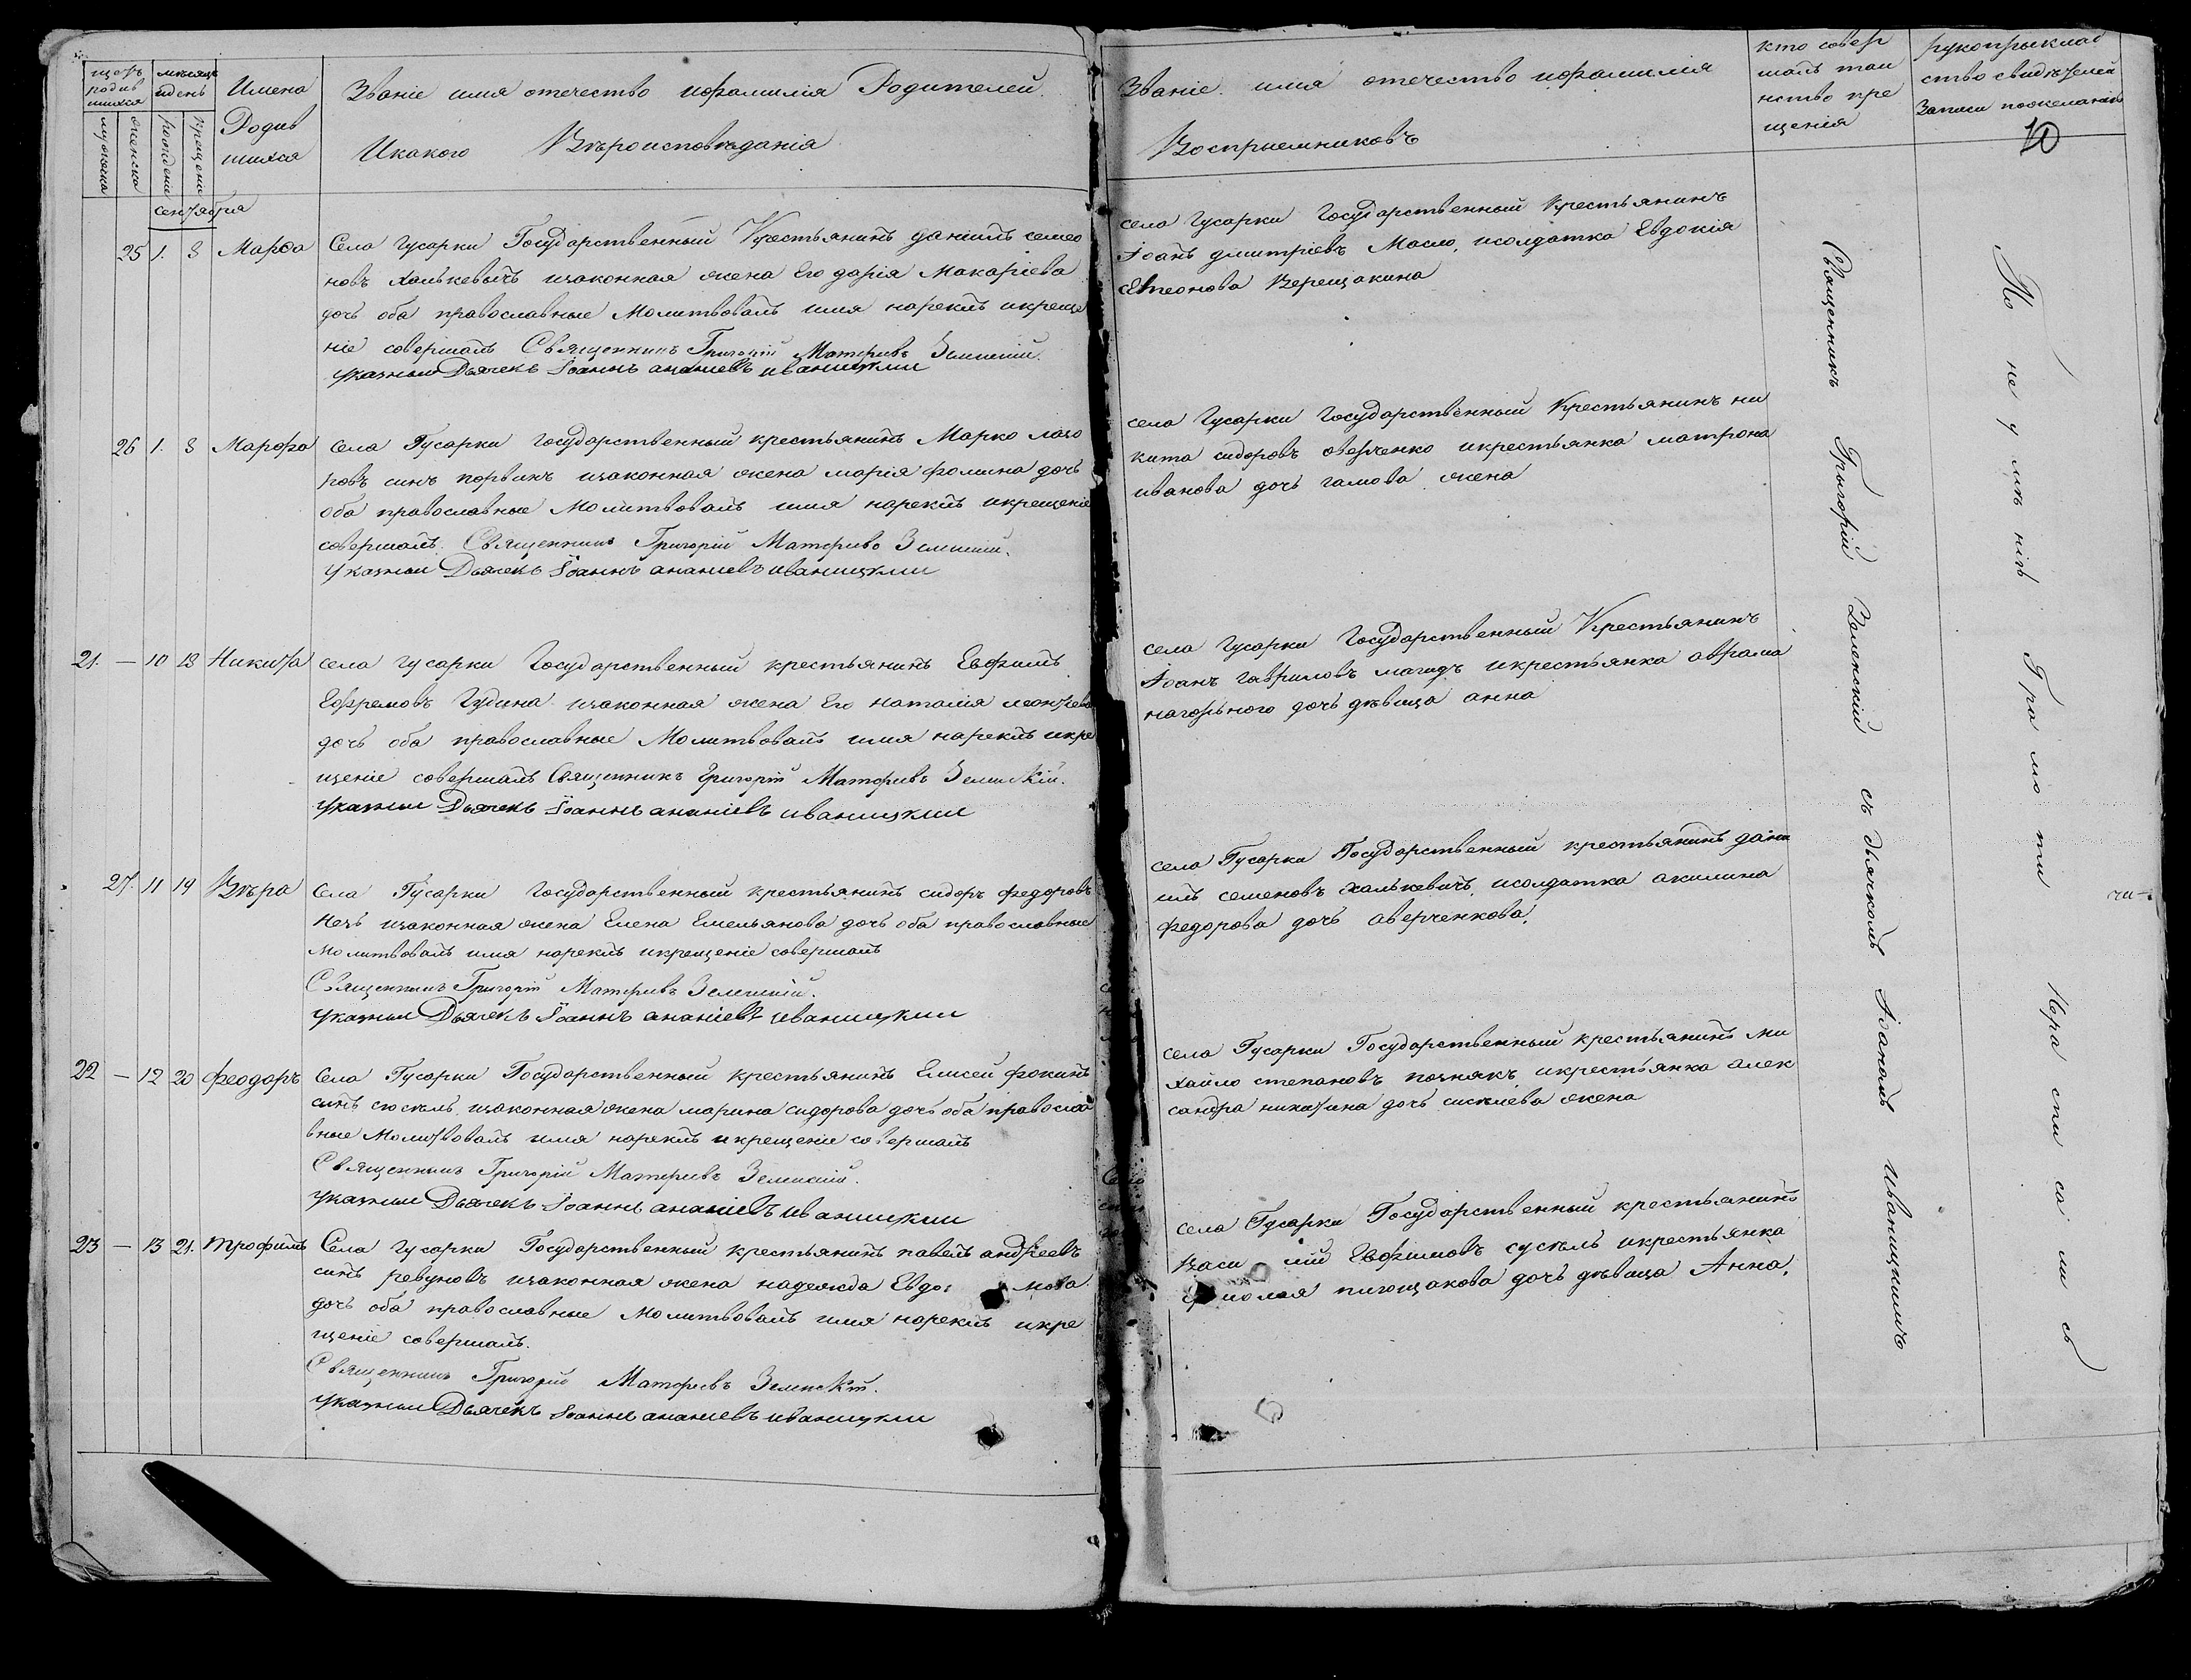 щетъ родив шихся
мѣсяцъ идень
Имена Родив шихся
Званіе имя отечество ифамилія Родителей
Икакого Вѣроисповѣданія
мужеска
женска
рожденіе
крещение
сентября
25 1. 3 Марфа
Села гусарки Государственный Крестьянинъ даніилъ семео
новъ халькевычъ изаконная жена Его дарія Макаріева
дочь оба православные Молитвовалъ имя нарекъ икреще
ніе совершалъ Священникъ Григорій Матфиевъ Зеленскій.
Указный Дьячекъ Іоаннъ ананиевъ иваницкии
26 1. 3 Марфа
села Гусарки государственный крестьянинъ Марко лазо
ровъ синъ изаконная жена марія фомина дочь
оба православные Молитвовалъ имя нарекъ икрещение
совершалъ. Священникъ Григорій Матфиевъ Зеленскій.
Указныи Дьячекъ Іоаннъ ананиевъ иваницкии
21. — 10 18 Никита
села гусарки Государственный крестьянинъ Евфимъ
Ефремовъ Гудина изаконная жена Его наталія леонтева
дочь оба православные Молитвовалъ имя нарекъ икре
щеніе совершалъ Священникъ Григорій Матфиевъ Зеленскій.
Указныи Дьячекъ Іоаннъ ананіевъ иваницкии
27. 11 19 Вѣра
Села Гусарки государственный крестьянинъ сидоръ федоровъ
изаконная жена Елена Емельянова дочь оба православные
молитвовалъ имя нарекъ икрещеніе совершалъ
Священникъ Григорій Матфиевъ Зеленскій.
Указныи Дьячекъ Іоаннъ ананіевъ иваницкии
22 — 12 20 Феодоръ
Села Гусарки Государственный крестьянинъ Елисей фокинъ
синъ изаконная жена марина сидорова дочь оба правосла
вные Молитвовалъ имя нарекъ икрещеніе совершалъ
Священникъ Григорій Матфиевъ Зеленскій.
Указныи Дьячекъ Іоаннъ ананіевъ иваницкии
23 — 13 21. Трофимъ
Села гусарки Государственный крестьянинъ павелъ андреевъ
синъ ревуновъ изаконная жена надежда
дочь оба православные Молитвовалъ имя нарекъ икре
щеніе совершалъ.
Священникъ Григорій Матфиевъ Зеленскій.
Указныи Дьячекъ Іоаннъ ананиевъ иваницкии
Званіе имя отечество ифамилія
Восприемниковъ
кто совер шалъ таи нство кре щенія
рукоприклад ство свидѣтелей Записи пожеланію
10
села гусарки Государственный Крестьянинъ
Іоанъ дмитріевъ Масло, исолдатка Евдокія
Верещакина
села гусарки государственный Крестьянинъ ни
кита сидоровъ оверченко икрестьянка матрона
иванова дочь гамова жена
села гусарки Государственный Крестьянинъ
Іоанъ гавриловъ магидъ икрестьянка аврама
нагорьного дочь дѣвица анна
села Гусарки Государственный крестьянинъ дани
илъ семеновъ халькевичъ исолдатка акилина
федорова дочь аверченкова,
села Гусарки Государственный крестьянинъ ми
хайло степановъ познякъ икрестьянка алек
сандра никитина дочь жена
села Гусарки Государственный крестьянинъ
Евфимовъ сускъль икрестьянка
дочь дѣвица Анна,
Священникъ Григорій Зеленскій съ дьячкомъ Іоаномъ Иваницкимъ
По не у мѣ нію Гра мо ти
Нера спи са ли сь